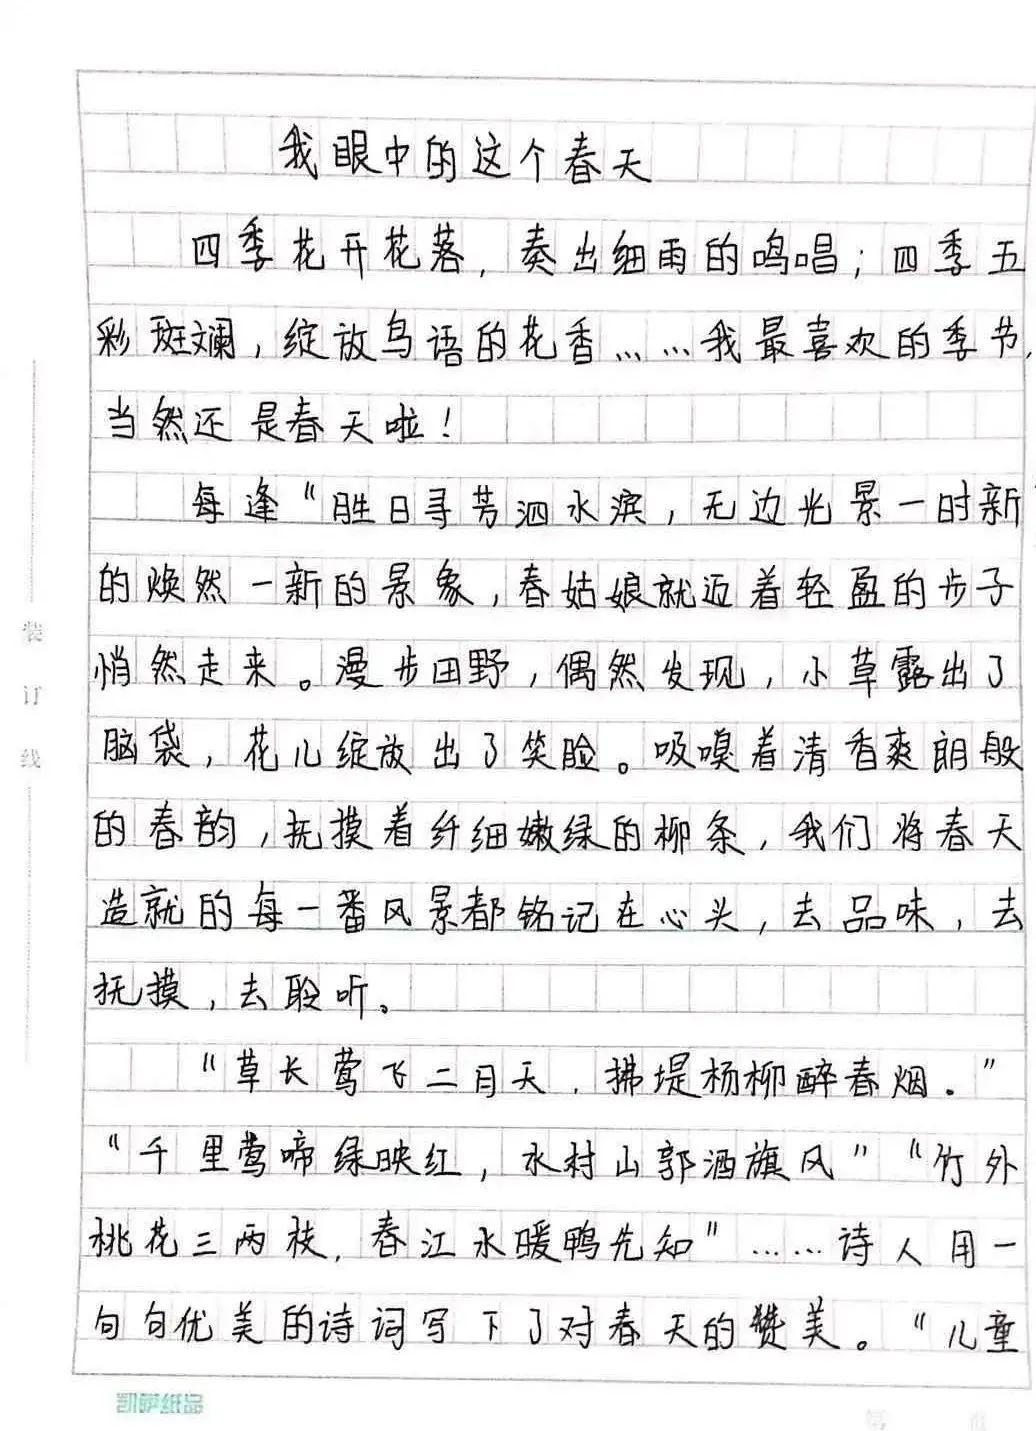 我眼中的这个春天
四季花开花落，奏出细雨的鸣唱；四季五
彩斑斓，绽放鸟语的花香……我最喜欢的季节，
当然还是春天啦！
每逢“胜日寻芳泗水滨，无边光景一时新”
的焕然一新的景象，春姑娘就迈着轻盈的步子
悄然走来。漫步田野，偶然发现，小草露出了
脑袋，花儿绽放出了笑脸。吸嗅着清香爽朗般
的春韵，抚摸着纤细嫩绿的柳条，我们将春天
造就的每一番风景都铭记在心头，去品味，去
抚摸，去聆听。
“草长莺飞二月天，拂堤杨柳醉春烟。”
“千里莺啼绿映红，水村山郭酒旗风”“竹外
桃花三两枝，春江水暖鸭先知”……诗人用一
句句优美的诗词写下了对春天的赞美。“儿童
装
订
线
凯萨纸品
第 页